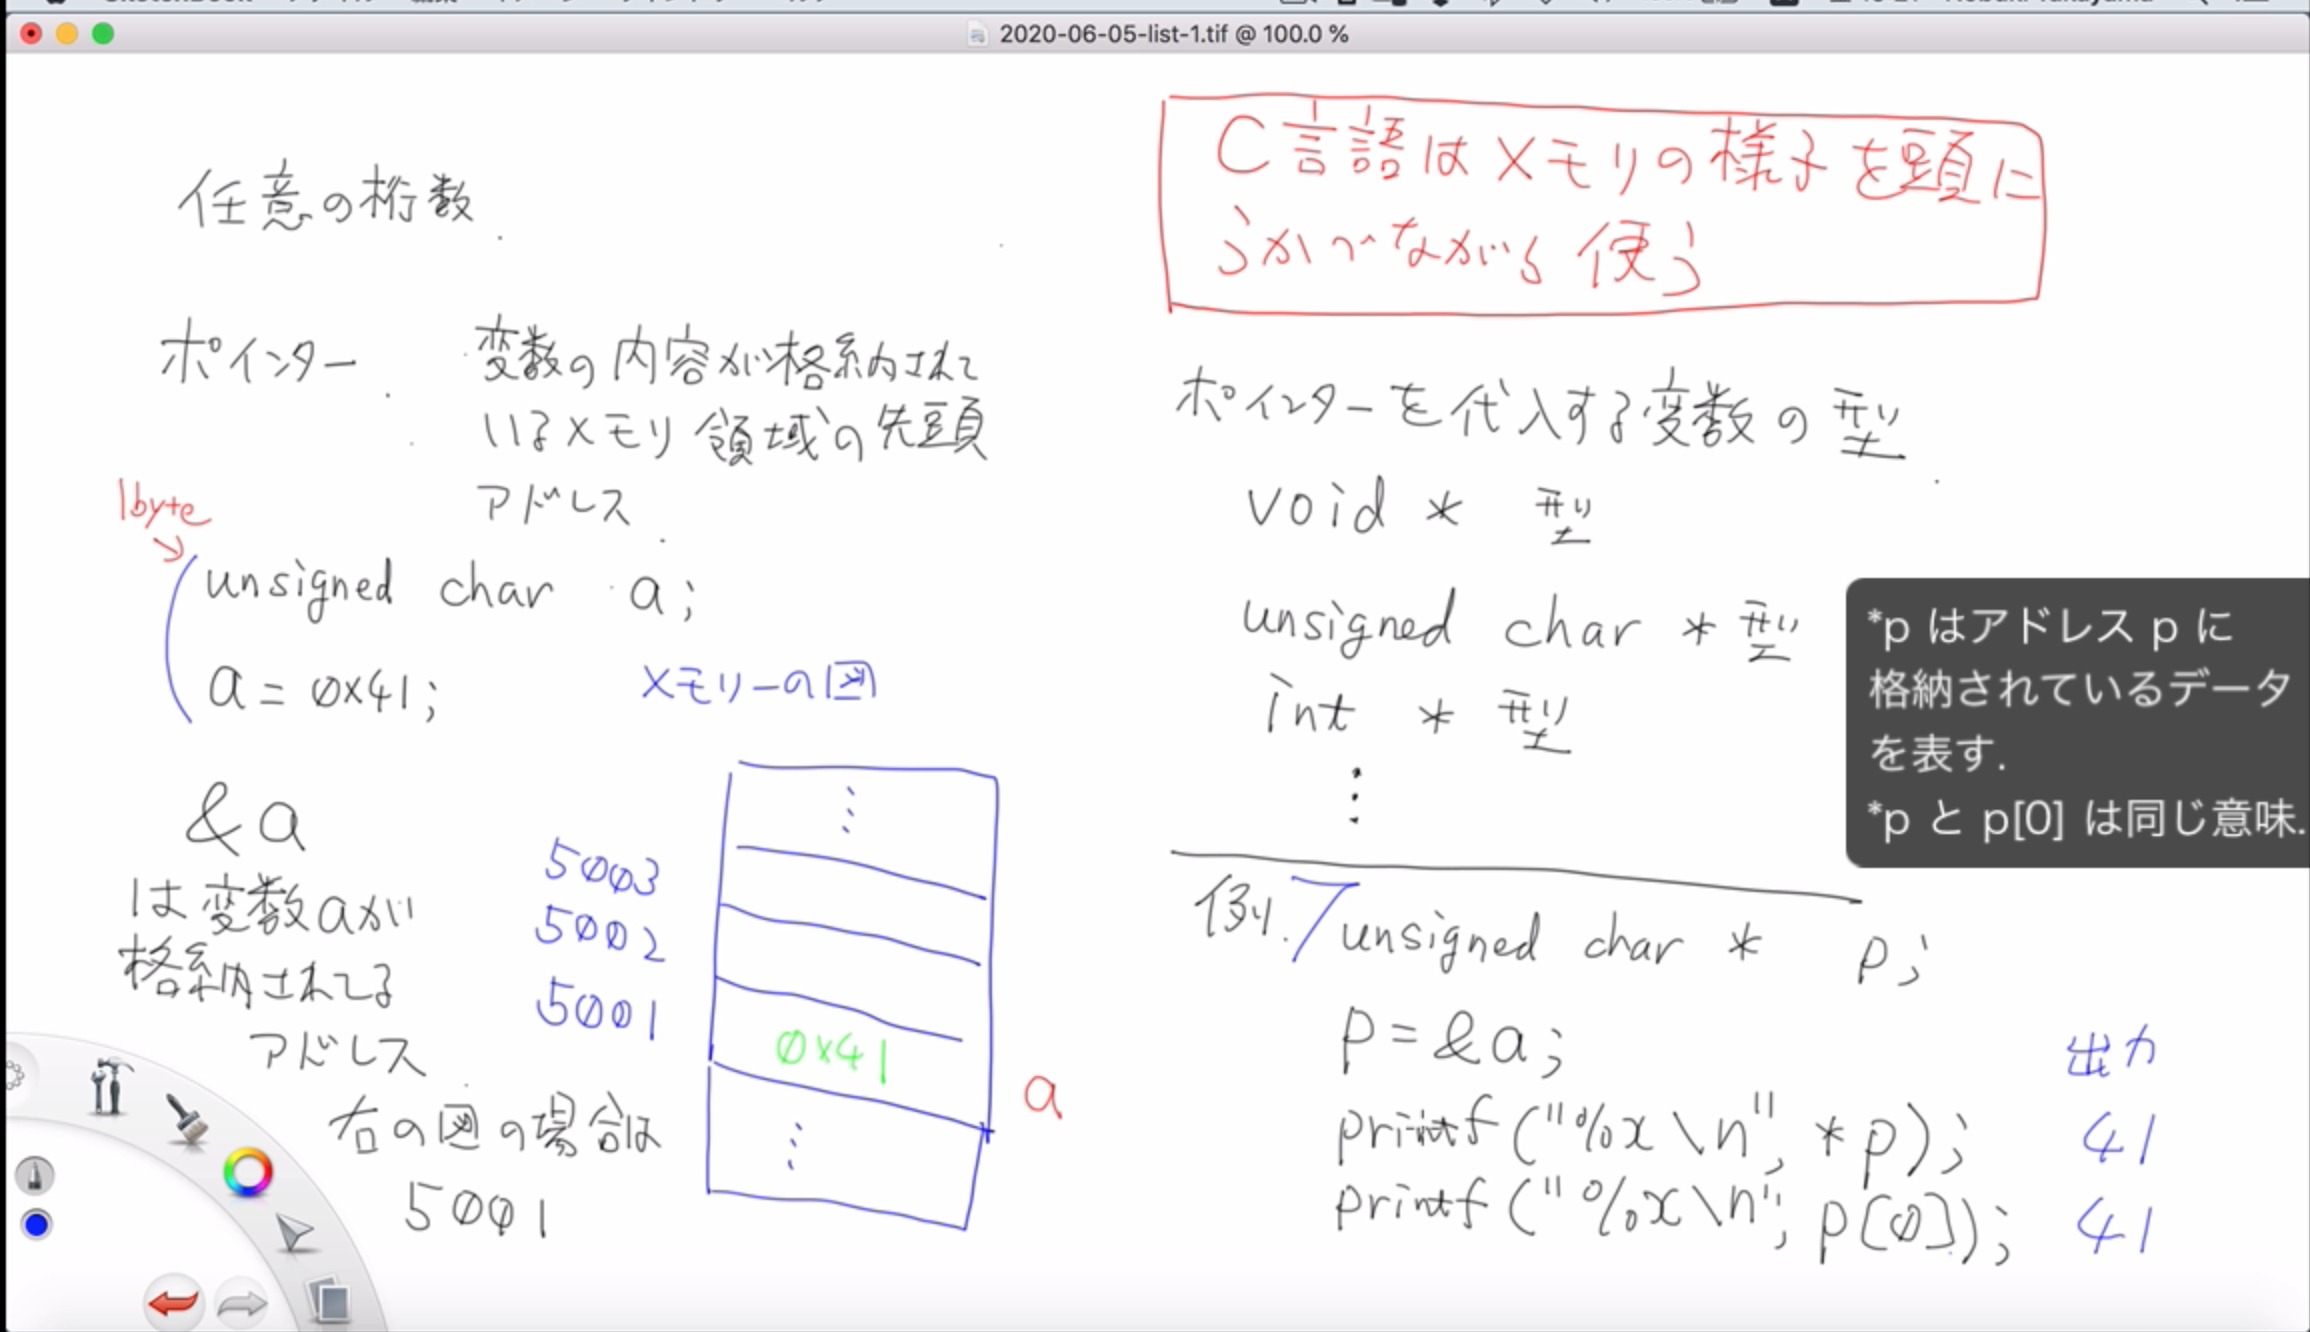 2020-06-05-list-1.tif @ 100.0 %
任意の桁数
ポインター 変数の内容が格納されて
いるメモリ領域の先頭
アドレス
1byte
unsigned char a;
a = 0x41;
&a
は変数aが
格納されてる
アドレス
右の図の場合は
5001
メモリーの図
5003
5002
5001
0x41
a
C言語はメモリの様子を頭に
うかべながら使う
ポインターを代入する変数の型
void * 型
unsigned char * 型
int * 型
*p はアドレス p に
格納されているデータ
を表す.
*p と p[0] は同じ意味.
例. unsigned char * p;
p = &a;
出力
printf("%x\n", *p); 41
printf("%x\n", p[0]); 41